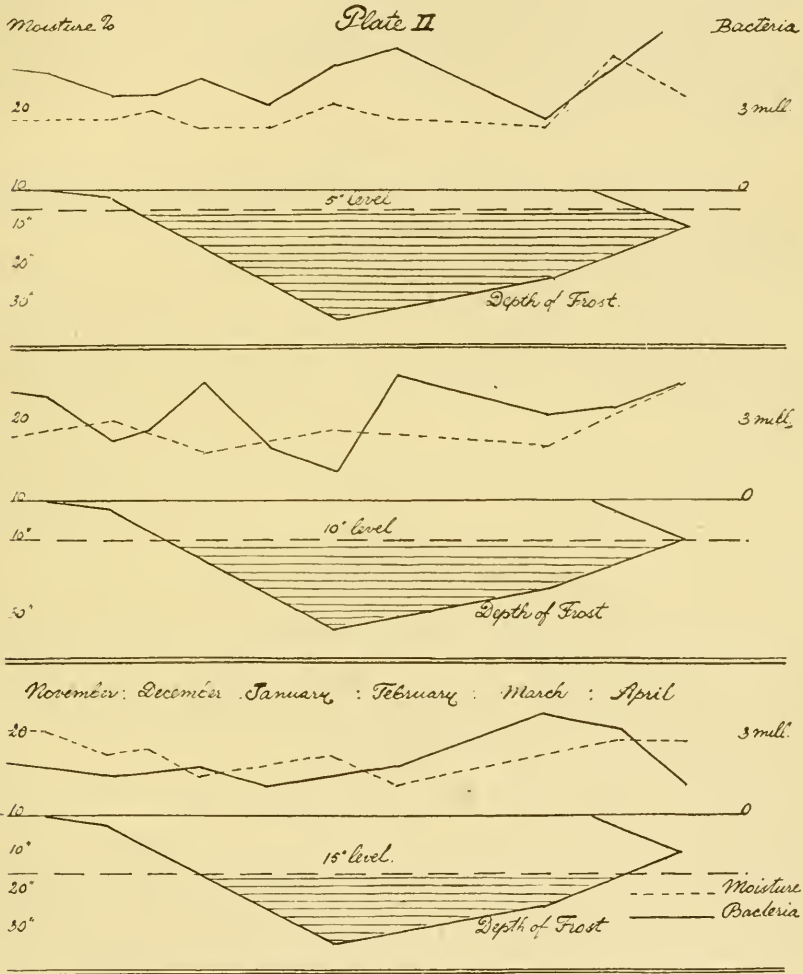 Moisture % Plate II Bacteria
20 3 mill.
10 0
5" level
10"
20"
30" Depth of Frost.
20 3 mill.
10 0
10" level
10"
30" Depth of Frost
November : December January : February : March : April
20 3 mill.
10 0
10" 15" level.
20"
Moisture
Bacteria
30" Depth of Frost